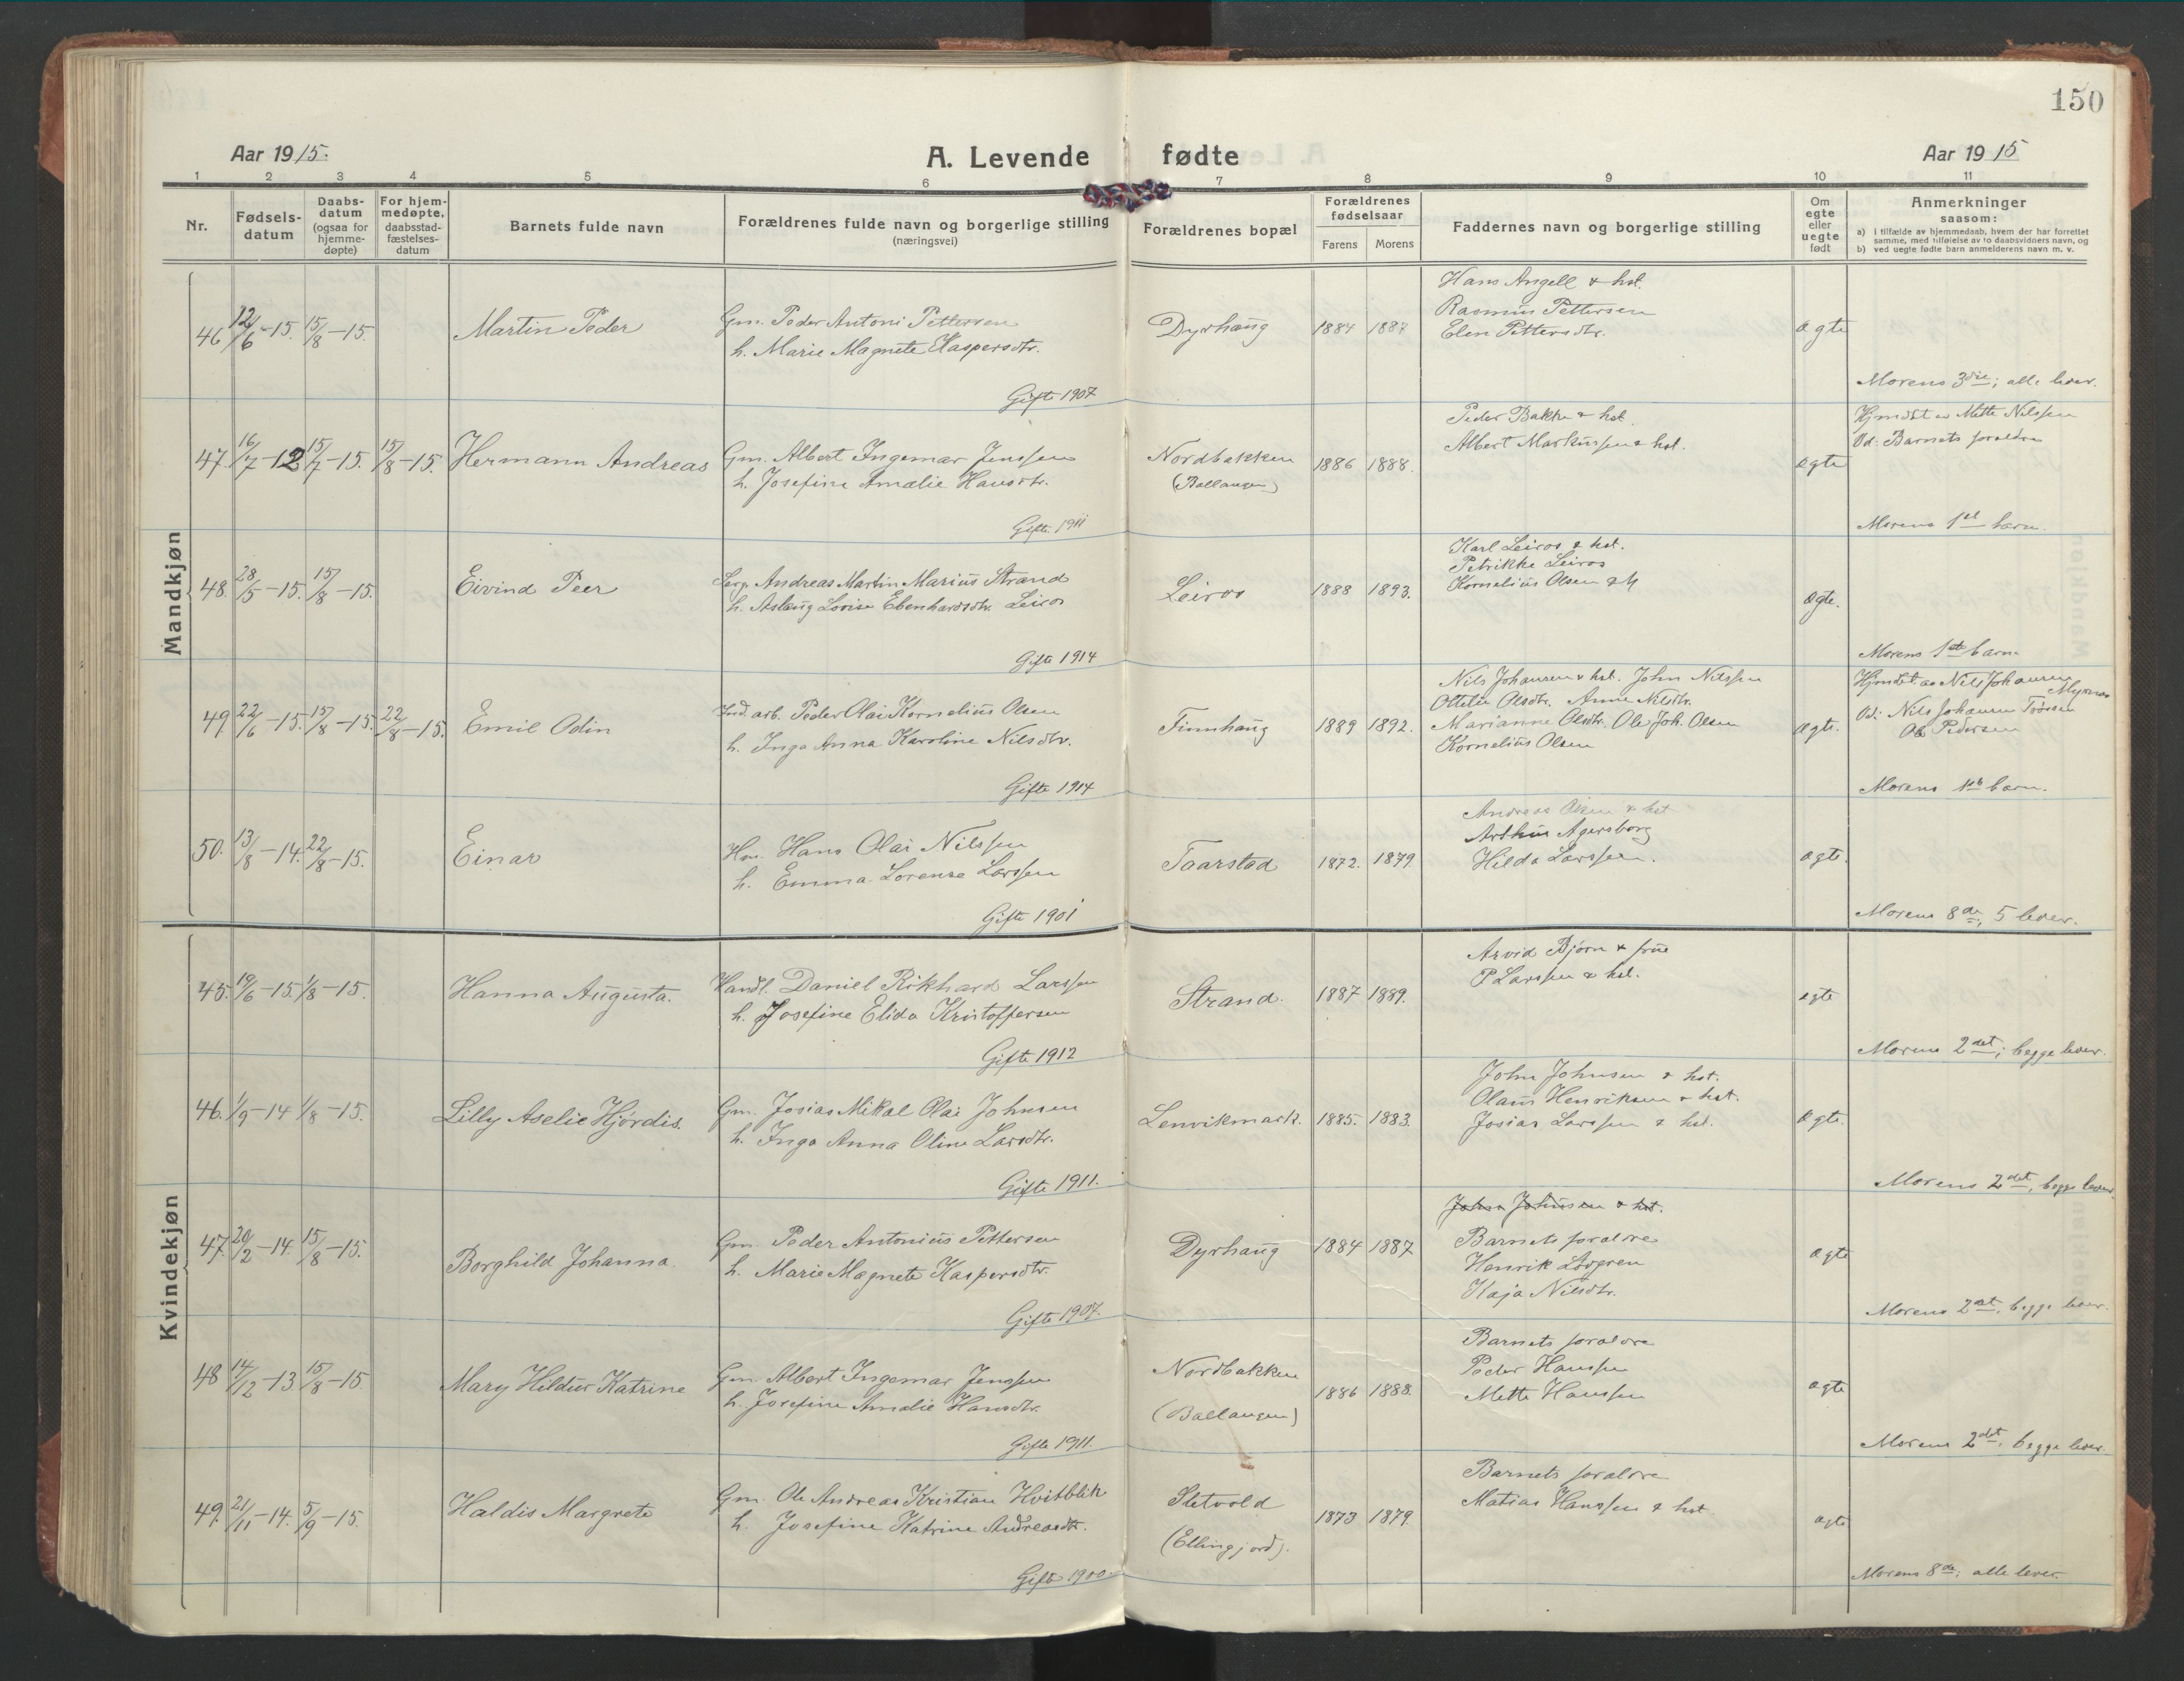 150
Aar 1915.
A. Levende fødte
Aar 1915
1 2 3 4 5 6 7 8 9 10 11
Nr.
Fødsels-
datum
Daabs-
datum
(ogsaa for
hjemme-
døpte)
For hjem-
medøpte,
daabsstad-
fæstelses-
datum
Barnets fulde navn
Forældrenes fulde navn og borgerlige stilling
(næringsvei)
Forældrenes bopæl
Forældrenes
fødselsaar
Farens Morens
Faddernes navn og borgerlige stilling
Om
egte
eller
uegte
født
Anmerkninger
saasom:
a) i tilfælde av hjemmedaab, hvem der har forrettet
samme, med tilføielse av to daabsvidners navn, og
b) ved uegte fødte barn anmelderens navn m. v.
Mandkjøn
46 12/6-15. 15/8-15.
Martin Peder
Gm. Peder Antoni Pettersen
h. Marie Magnete Kaspersdtr.
Gifte 1907
Dyrhaug
1884 1887
Hans Angell & hst.
Rasmus Pettersen
Elen Pettersdtr.
egte
Morens 3die; alle lever.
47. 16/7-12 15/7-15. 15/8-15.
Hermann Andreas
Gm. Albert Ingemar Jenssen
h. Josefine Amalie Hansdtr.
Gifte 1911
Nordbakken
(Ballangen)
1886 1888.
Peder Bakke & hst.
Albert Markussen & hst.
egte
Hjmdøt av Mette Nilssen
Od: Barnets forældre
Morens 1st barn.
48. 28/5-15. 15/8-15.
Eivind Peer
Andreas Martin Marius Strand
h. Aslaug Lovise Ebenhardsdtr. Leiros
Gifte 1914
Leiros
1888 1893.
Karl Leiros & hst.
Petrikke Leiros
Kornelius Olsen
egte.
Morens 1ste barn
49. 22/6-15. 15/8-15. 22/8-15.
Emil Odin
Ind. arb. Peder Olai Kornelius Olsen
h. Inga Anna Karoline Nilsdtr.
Gifte 1914
Finnhaug
1889 1892.
Nils Johansen & hst. John Nilssen
Ottelie Olsdtr. Anne Nilsdtr.
Marianne Olsdtr. Ole Joh. Olsen
Kornelius Olsen
egte.
Hjmdøt. av Nils Johansen
Myrnes
Od: Nils Johansen
Ole Pedersen
Morens 1ste barn.
50. 13/8-14. 22/8-15.
Einar
Hm. Hans Olai Nilssen
h. Emma Lorense Larssen
Gifte 1901
Taarstad
1872. 1879
Andreas Olsen & hst
Arthur Agersborg
Hilda Larssen.
egte.
Morens 8de, 5 lever.
Kvindekjøn
45. 19/6-15. 1/8-15.
Hanna Augusta.
Handl. Daniel Rikhard Larssen
h. Josefine Elida Kristoffersen
Gifte 1912
Strand.
1887 1889.
Arvid Bjørn & frue
P Larssen & hst.
egte
Morens 2det; begge lever.
46. 1/9-14 1/8-15.
Lilly Aselie Hjørdis.
Gm. Josias Mikal Olai Johnsen
h. Inga Anna Oline Larsdtr.
Gifte 1911.
Lenvikmark.
1885. 1883.
John Johnsen & hst.
Olaus Henriksen & hst.
Josias Larssen & hst.
egte.
Morens 2det, begge lever.
47. 20/2-14. 15/8-15.
Borghild Johanna.
Gm. Peder Antonius Pettersen
h. Marie Magnete Kaspersdtr.
Gifte 1907.
Dyrhaug
1884 1887
John Johnsen & hst.
Barnets forældre
Henrik Løvgren
Kaja Nilsdtr.
egte
Morens 2det, begge lever.
48 14/12-13. 15/8-15.
Mary Hildur Katrine
Gm. Albert Ingemar Jenssen
h. Josefine Amalie Hansdtr.
Gifte 1911.
Nordbakken
(Ballangen)
1886 1888.
Barnets forældre
Peder Hanssen
Mette Hanssen
egte
Morens 2det, begge lever.
49. 21/11-14. 5/9-15.
Haldis Margrete
Gm. Ole Andreas Kristian Hvitblik
h. Josefine Katrine Andreasdtr.
Gifte 1900.
Sletvold
(Ellingjord).
1873 1879.
Barnets forældre
Matias Hanssen & hst.
egte
Morens 8de; alle lever.